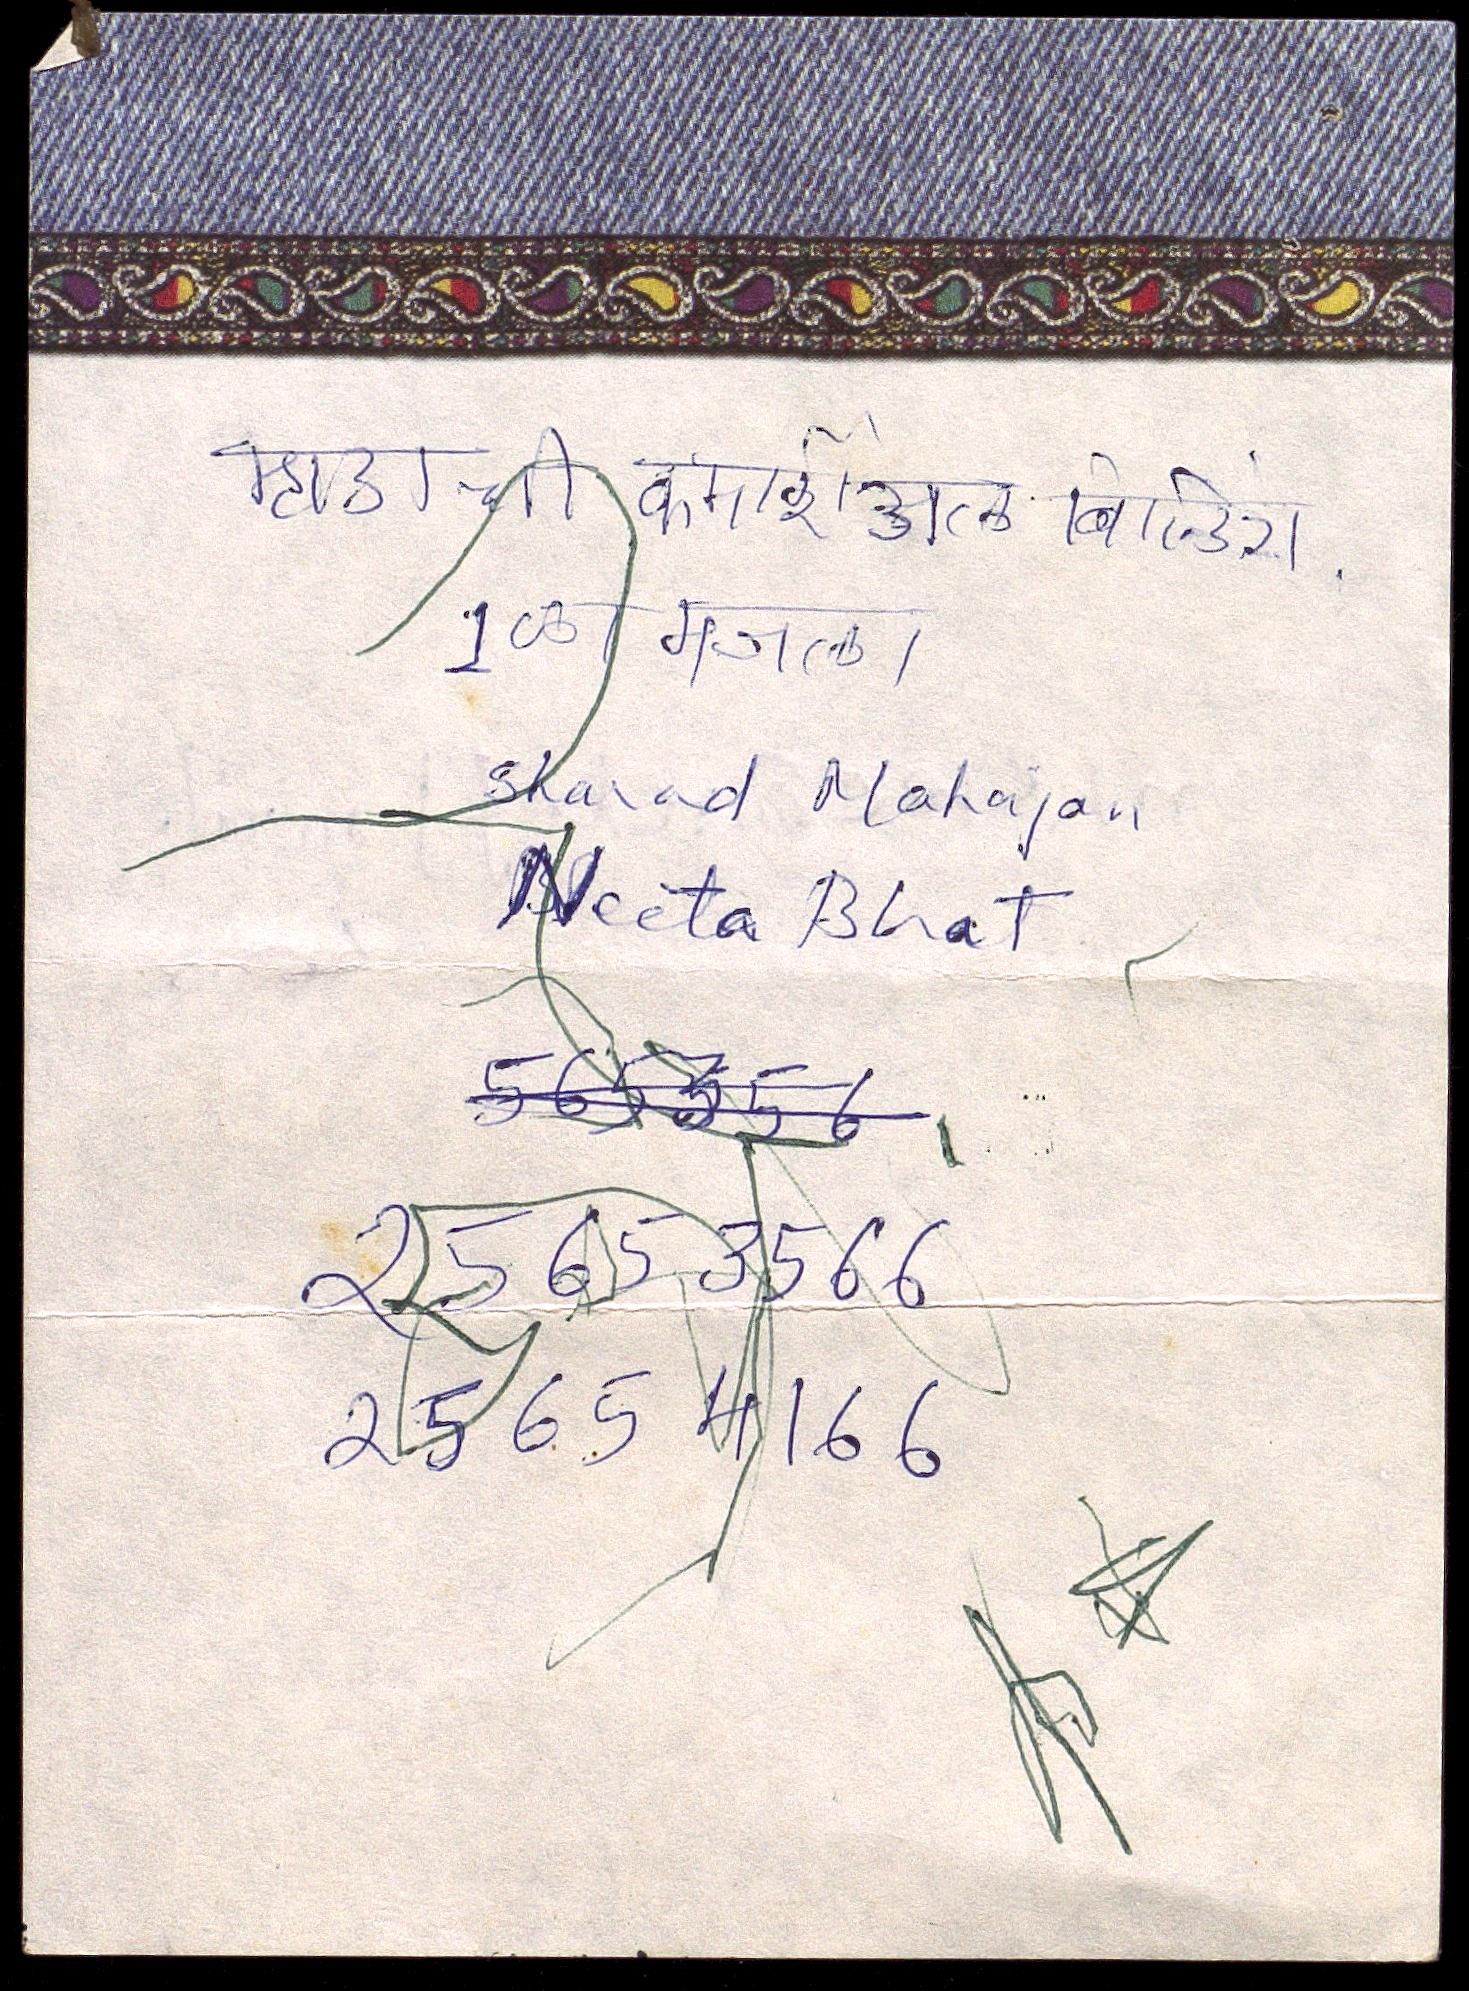 म्हाडाची कमर्शिअल बिल्डिंग.
1ला मजला
Sharad Mahajan
Neeta Bhat
2 5 6 5 3 5 6 6
2 5 6 5 4 1 6 6